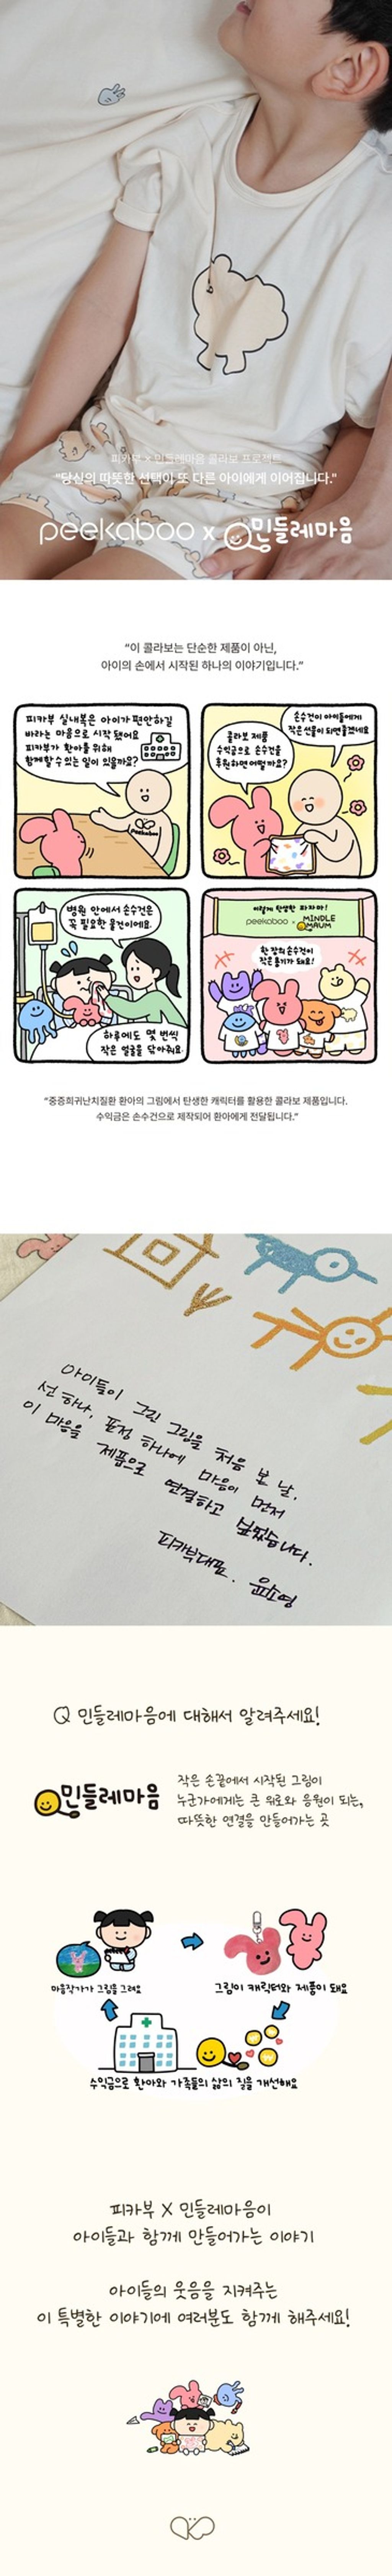 피카부 × 민들레마음 콜라보 프로젝트
"당신의 따뜻한 선택이 또 다른 아이에게 이어집니다."
peekaboo x 민들레마음
"이 콜라보는 단순한 제품이 아닌,
아이의 손에서 시작된 하나의 이야기입니다."
피카부 실내복은 아이가 편안하길
바라는 마음으로 시작 됐어요
피카부가 환아를 위해
함께할 수 있는 일이 있을까요?
Peekaboo
콜라보 제품
수익금으로 손수건을
후원하면 어떨까요?
손수건이 아이들에게
작은 선물이 되면 좋겠네요
병원 안에서 손수건은
꼭 필요한 물건이에요.
하루에도 몇 번씩
작은 얼굴을 닦아줘요
이렇게 탄생한 파자마!
peekaboo × MINDLE MAUM
한 장의 손수건이
작은 용기가 돼요!
"중증희귀난치질환 환아의 그림에서 탄생한 캐릭터를 활용한 콜라보 제품입니다.
수익금은 손수건으로 제작되어 환아에게 전달됩니다."
아이들이 그린 그림을 처음 본 날,
선 하나, 표정 하나에 마음이 먼저
이 마음을 제품으로 연결하고 싶었습니다.
피카부대표. 윤소영
Q 민들레마음에 대해서 알려주세요!
민들레마음
작은 손끝에서 시작된 그림이
누군가에게는 큰 위로와 응원이 되는,
따뜻한 연결을 만들어가는 곳
마음작가가 그림을 그려요
그림이 캐릭터와 제품이 돼요
수익금으로 환아와 가족들의 삶의 질을 개선해요
피카부 X 민들레마음이
아이들과 함께 만들어가는 이야기
아이들의 웃음을 지켜주는
이 특별한 이야기에 여러분도 함께 해주세요!